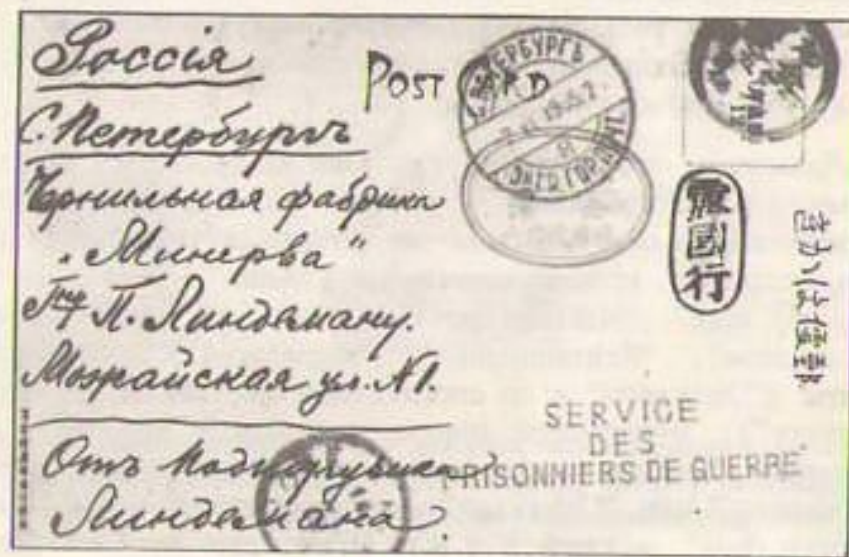 Россія
С. Петербургъ
Чернильная фабрика
„Минерва“
П. Линдеману.
Можайская ул. №1.
Отъ Подпоручика
Линдемана
POST CARD
С.ПЕТЕРБУРГЪ
露國行
きかは便郵
SERVICE
DES
PRISONNIERS DE GUERRE